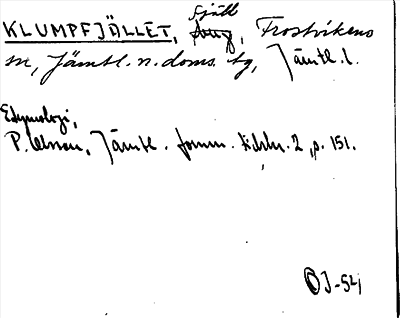 KLUMPFJÄLLET, fjäll, Frostvikens
sn, Jämtl. n. doms. tg, Jämtl. l.
Etymologi,
P. Olsson, Jämtl. fornm. tidskr. 2, p. 151.
OJ-52